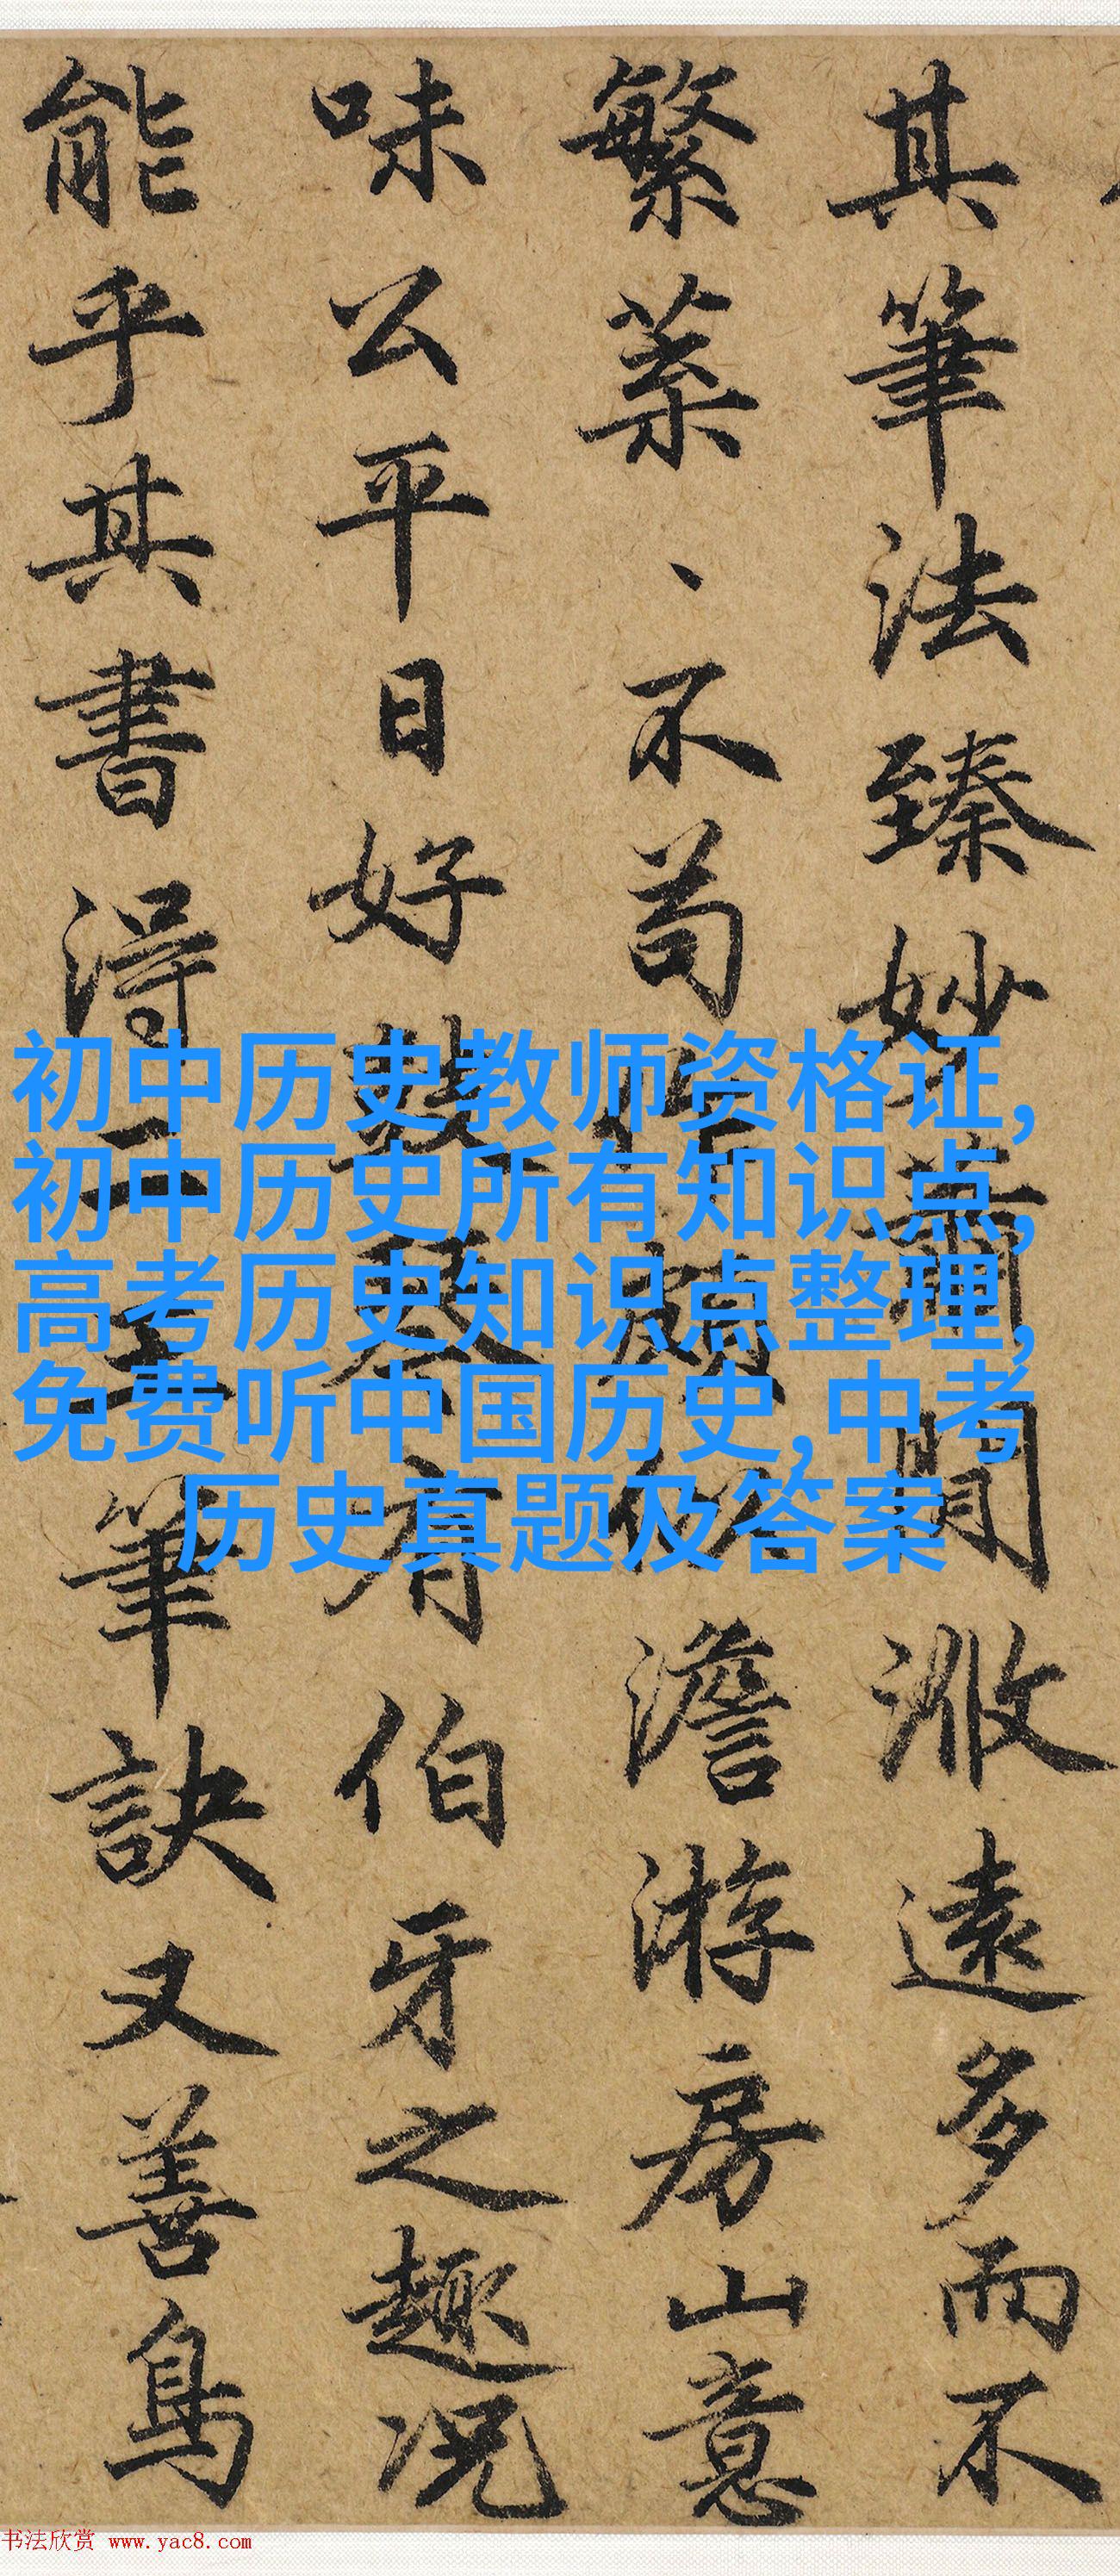 其筆法臻妙蕭閒澉遠多而不
繁菜、不苟作頗似澹游房山意
味公平日好鼓琴有伯牙之趣况
能乎其書得二王筆訣又善鳥
初中历史教师资格证,
初中历史所有知识点,
高考历史知识点整理,
免费听中国历史,中考
历史真题及答案
书法欣赏 www.yac8.com